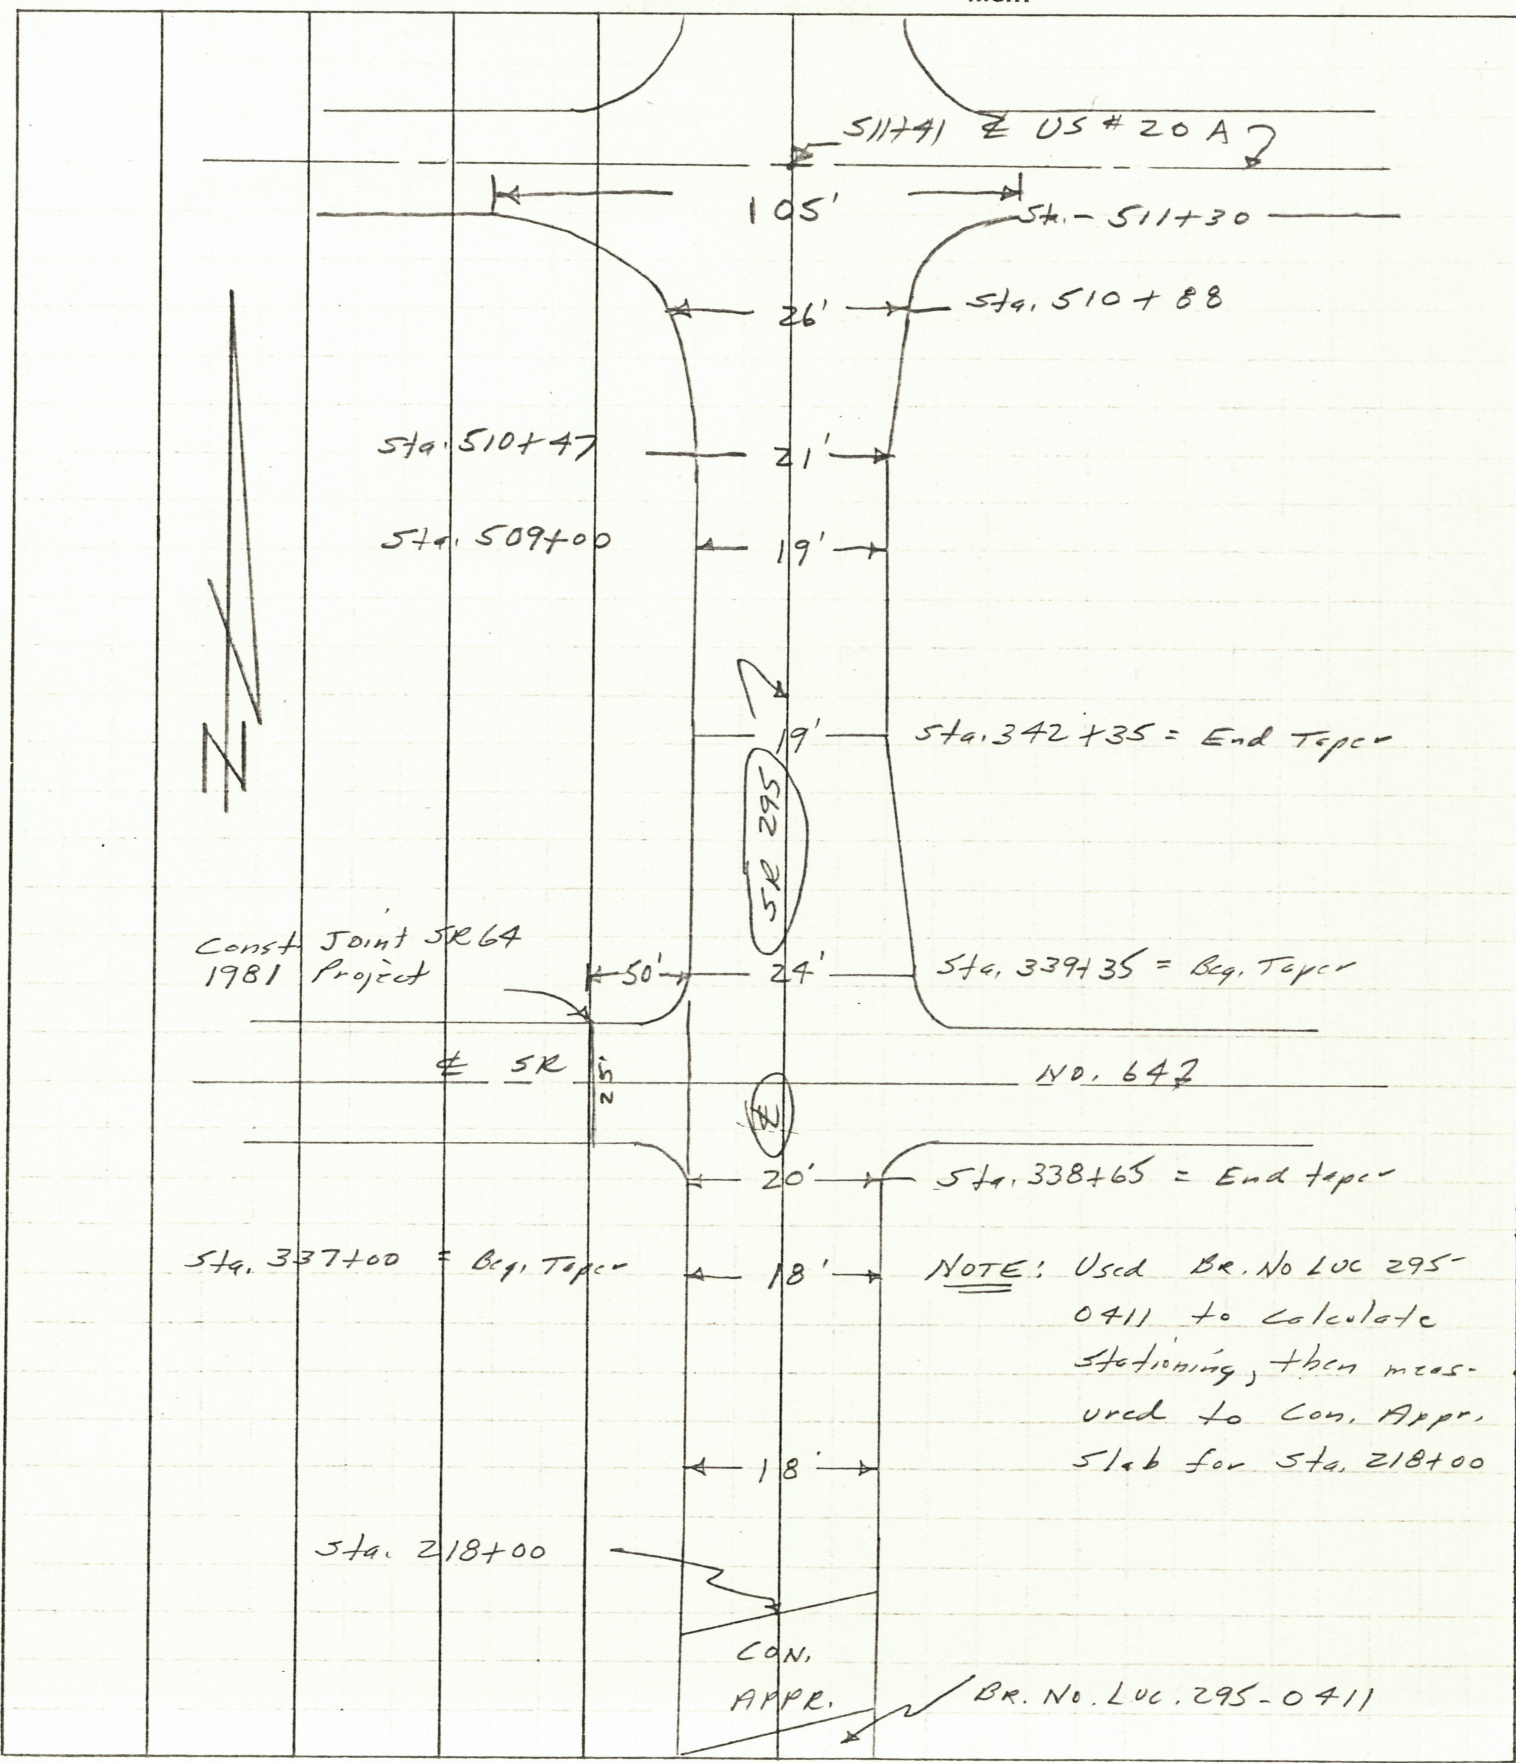 511+41 ℄ US # 20 A
105'
Sta. - 511+30
26'
Sta. 510 + 88
Sta. 510+47
21'
Sta. 509+00
19'
19'
Sta. 342 +35 = End Taper
SR 295
Const Joint SR 64
1981 Project
50'
24'
Sta. 339+35 = Beg. Taper
℄ SR
25'
No. 64
℄
20'
Sta. 338+65 = End taper
Sta. 337+00 = Beg. Taper
18'
NOTE: Used BR. No LUC 295-
0411 to calculate
stationing, then meas-
ured to Con. Appr.
Slab for Sta. 218+00
18'
Sta. 218+00
CON.
APPR.
BR. NO. LUC. 295-0411
N